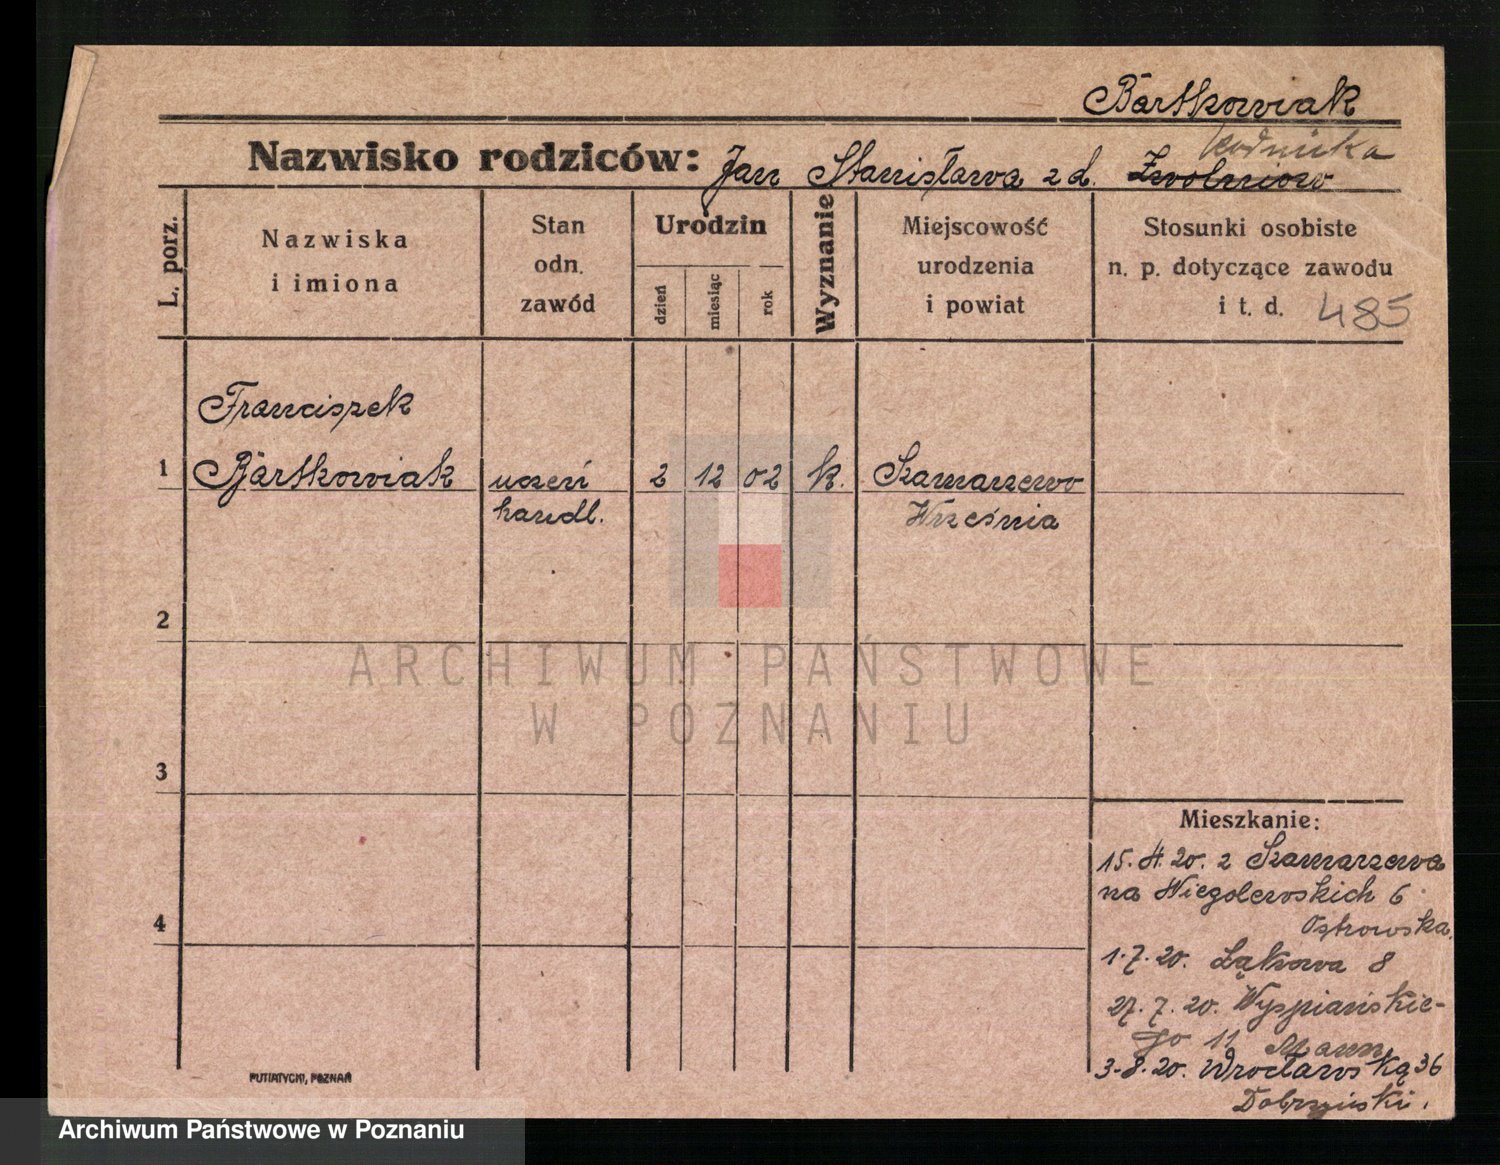 Bartkowiak
Nazwisko rodziców: Jan Stanisława z d. Zwolniów
Woźnicka
L. porz.
Nazwiska
i imiona
Stan
odn.
zawód
Urodzin
dzień
miesiąc
rok
Wyznanie
Miejscowość
urodzenia
i powiat
Stosunki osobiste
n. p. dotyczące zawodu
i t. d. 485
Franciszek
1 Bartkowiak uczeń 2 12 02 k. Szamarzewo
handl. Września
2
ARCHIWUM PAŃSTWOWE
W POZNANIU
3
Mieszkanie:
15. 4. 20. z Szamarzewa
na Niegolewskich 6
Ostrowska.
4
1.7.20. Łąkowa 8
27.7.20. Wyspiańskie-
go 11 Mann
3.8.20. Wrocławską 36
Dobrzyński.
PUTIATYCKI, POZNAŃ
Archiwum Państwowe w Poznaniu